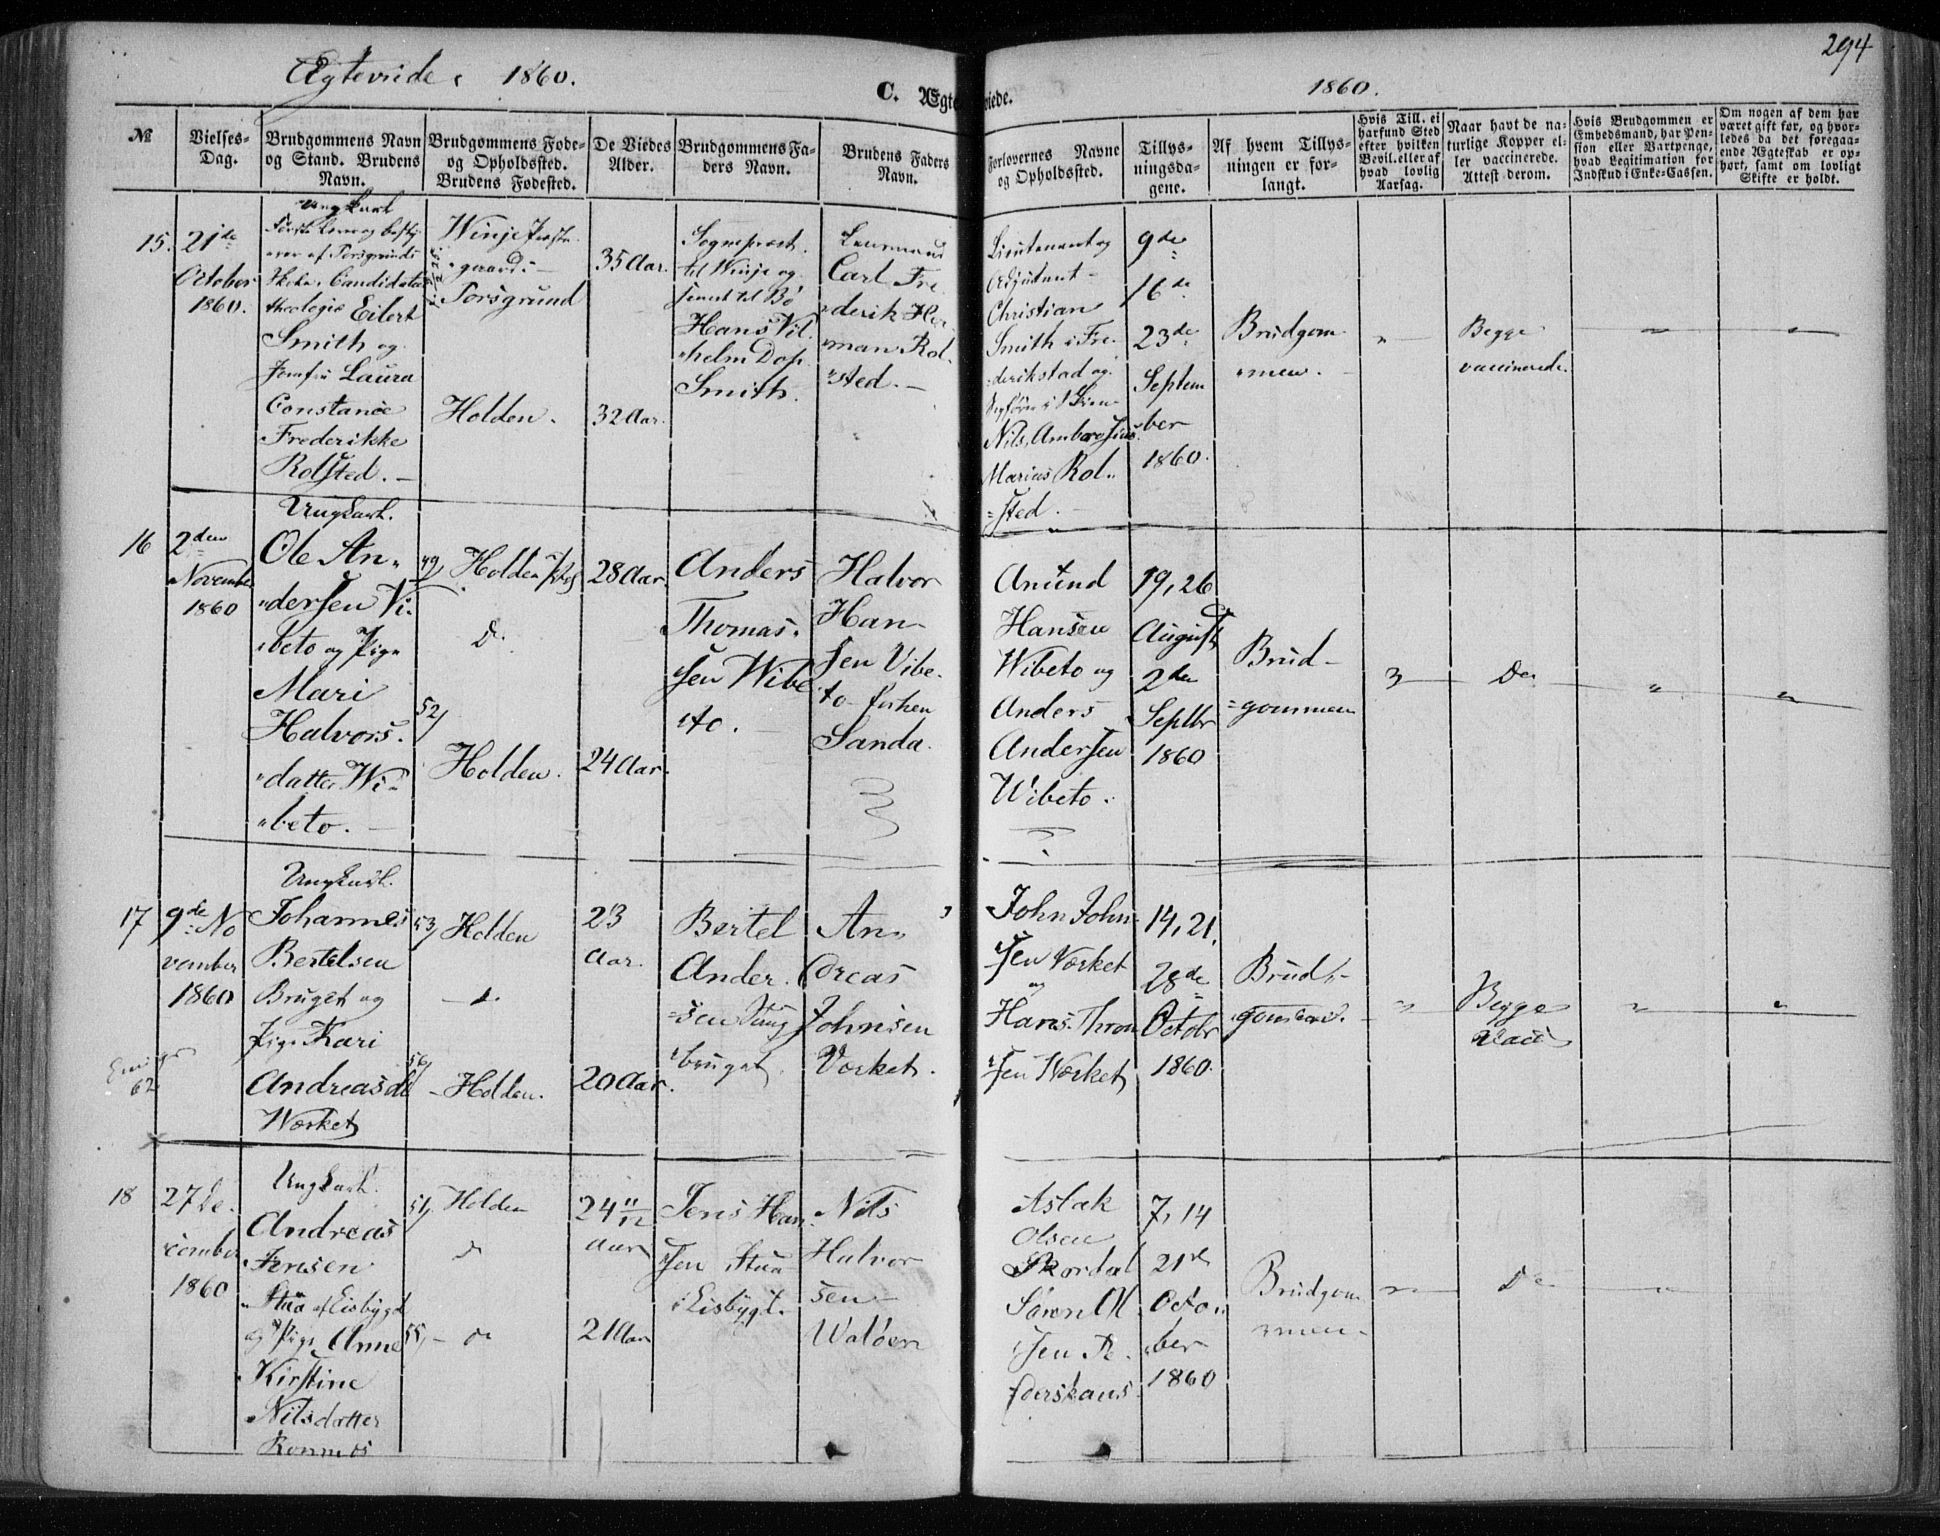 294
Ægteviede, 1860.
C. Ægteviede.
1860.
№
Vielses-
Dag.
Brudgommens Navn
og Stand. Brudens
Navn.
Brudgommens Føde-
og Opholdssted.
Brudens Fødested.
De Viedes
Alder.
Brudgommens Fa-
ders Navn.
Brudens Faders
Navn.
Forlovernes Navne
og Opholdssted.
Tillys-
ningsda-
gene.
Af hvem Tillys-
ningen er for-
langt.
Hvis Till. ei
har fund. Sted
efter hvilken
Bevil. eller af
hvad lovlig
Aarsag.
Naar havt de na-
turlige Kopper el-
ler vaccinerede.
Attest derom.
Hvis Brudgommen er
Embedsmand, har Pen-
sion eller Vartpenge,
hvad Legitimation for
Indskud i Enke-Cassen.
Om nogen af dem har
været gift før, og hvor-
ledes da det foregaa-
ende Ægteskab er op-
hørt, samt om lovligt
Skifte er holdt.
15.
21de
October
1860.
Ungkarl
Første Lærer og besty-
rer af Porsgrunds
Skole, Candidatus
theologiæ Eilert
Smith og
Jomfru Laura
Constance
Frederikke
Rolsted. -
Winje Præste-
gaard -
Porsgrund
Holden.
35 Aar.
32 Aar.
Sogneprest
til Winje og
senest til Bø
Hans Vil-
helm Dop
Smith.
Lensmand
Carl Fre-
derik Her-
man Rol-
sted. -
Lieutenant og
Adjutant
Christian
Smith i Fre-
derikstad og
Nils Ambrosius
Marius Rol-
sted.
9de
16de
23de
Septem
ber
1860.
Brudgom-
men.
"
Begge
vaccinerede.
"
"
16
2den
November
1860
Ungkarl.
Ole An-
dersen Vi-
beto og Pige
Mari
Halvors-
datter Wi-
beto. -
49/
Holden
Do
52/
Holden.
28 Aar.
24 Aar.
Anders
Thomas-
sen Wibe
to.
Halvor
Han-
sen Vibe-
to forhen
Sanda.
Anund
Hansen
Wibeto og
Anders
Andersen
Wibeto.
19, 26
August
2den
Septbr
1860
Brud-
gommen
"
Do
"
"
17
9de No
vember
1860
62
Ungkarl.
Johannes
Bertelsen
Bruget og
Pige Kari
Andreasd
Wærket
53/
Holden
56/
Holden.
23
Aar.
20 Aar.
Bertel
Ander-
sen
bruget.
An-
dreas
Johnsen
Værket.
John John-
sen Værket
og
Hans Thron
sen Wærket
14, 21.
28de
Octobr
1860.
Brud-
gommen.
"
Begge
Vacc
"
"
18
27 De-
cember
1860
Ungkarl.
Andreas
Jensen
Stua af Eisbygd
og Pige Anne
Kirstine
Nilsdatter
Romnes
51/
Holden
Do
55/
Do
24 11/12
Aar
21 Aar
Jens Han-
sen Stua
i Eisbygd.
Nils
Halvor
sen
Waløen
Aslak
Olsen
Skordal
Søren Ol
sen
7, 14
21de
Octo-
ber
1860
Brudgom
men.
"
Do
"